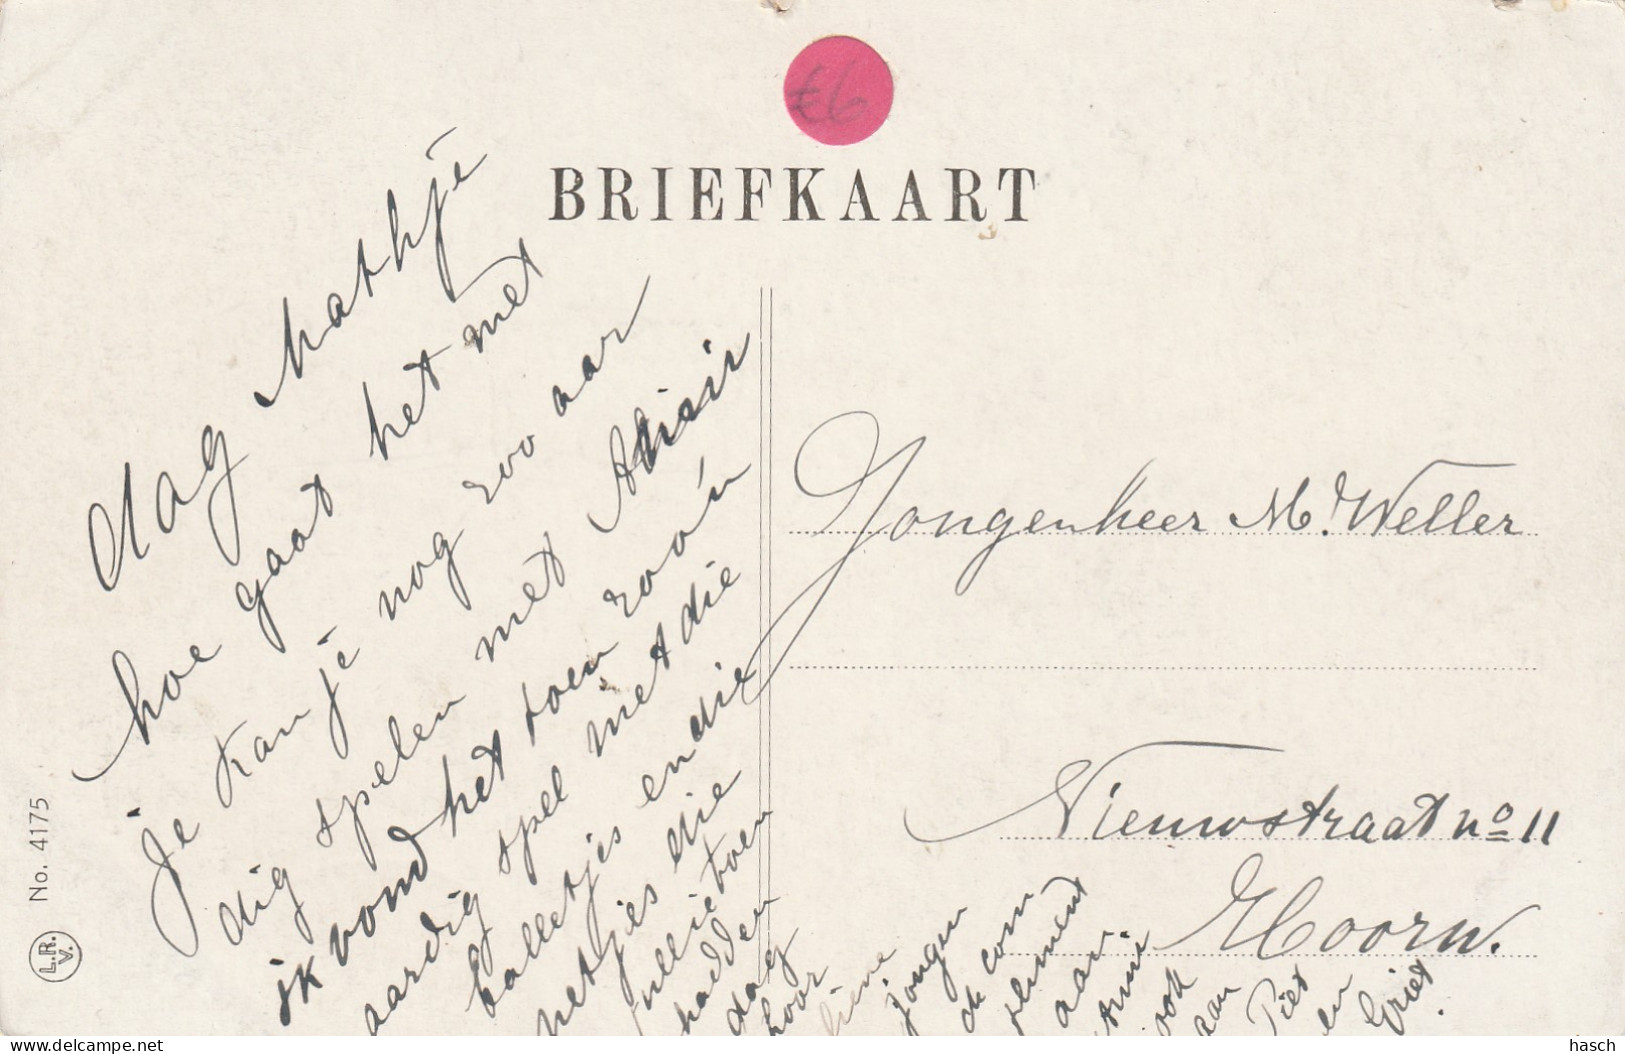 £6
BRIEFKAART
dag Mathje
hoe gaat het met
je kan je nog zoo aar
dig spelen met
ik vond het toen zoo'n
aardig spel met die
balletjes en die
netjes die
jullie toen
hadden
dag
hoor
jongen
de com
pliment
aan
ook
aan
Piet
en
Griet.
Jongenheer M. Weller
Nieuwstraat no 11
Hoorn.
No. 4175
L.R.
V.
delcampe.net
hasch